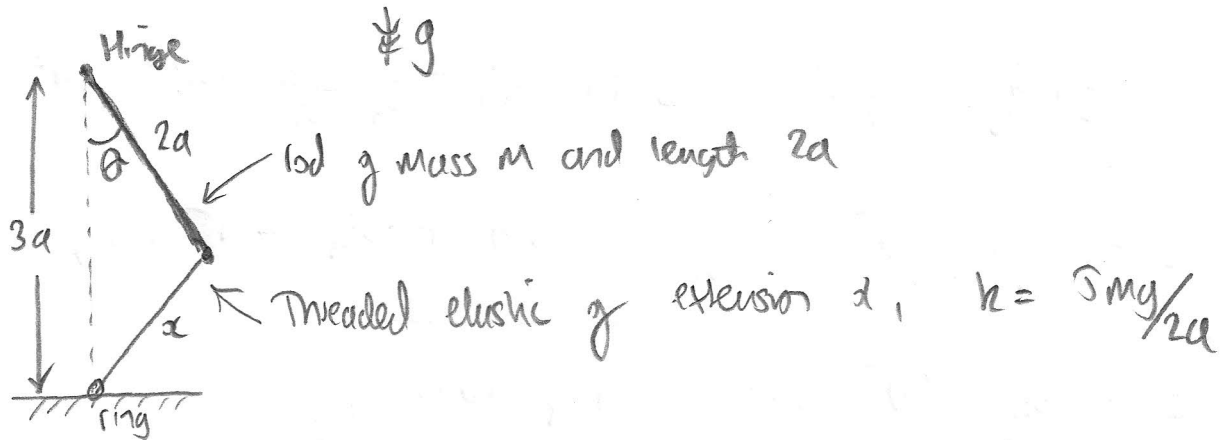 Hinge
g
2a
θ
rod of mass M and length 2a
3a
Threaded elastic of extension x, k = 5Mg/2a
x
ring